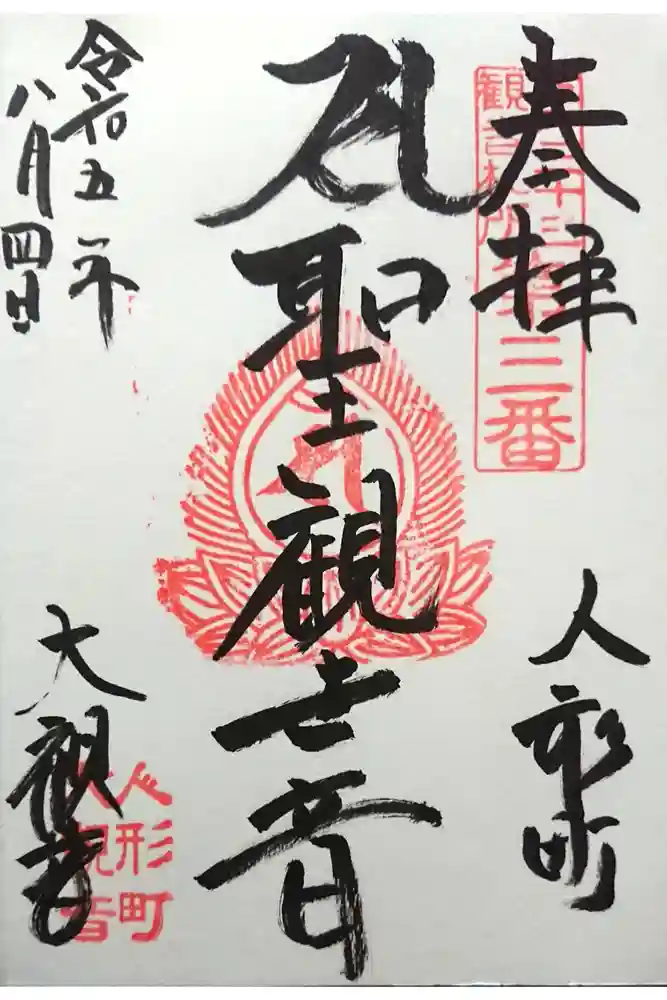 奉拝
人形町
聖観世音
令和五年
八月四日
大観音
三十三
観音札所
第三番
人形町
大観音